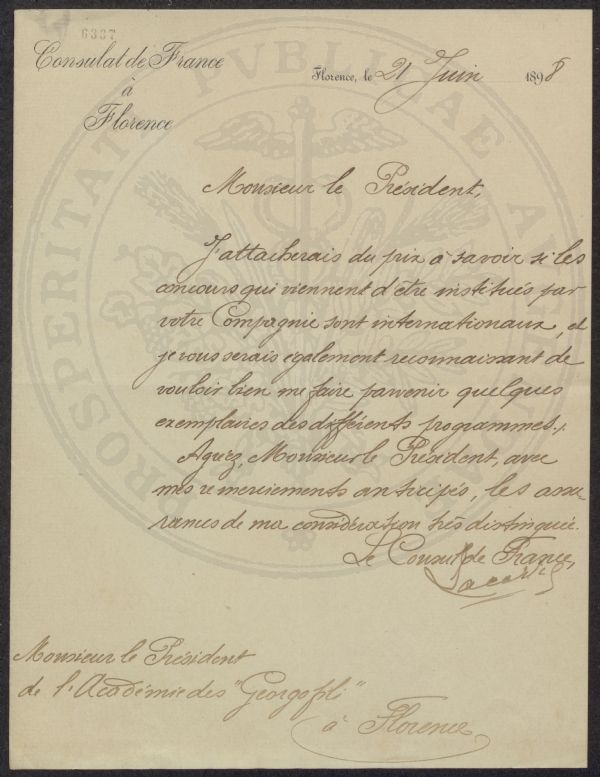 6337
Consulat de France
à
Florence
Florence, le 21 Juin 1898
Monsieur le Président,
J'attacherais du prix à savoir si les
concours qui viennent d'être institués par
votre Compagnie sont internationaux, et
je vous serais également reconnaissant de
vouloir bien me faire parvenir quelques
exemplaires des différents programmes./.
Agréez, Monsieur le Président, avec
mes remerciements anticipés, les assu-
rances de ma considération très distinguée.
Le Consul de France,
Monsieur le Président
de l'Académie des "Georgofili"
à Florence
PROSPERITATI PVBLICAE AVGENDAE